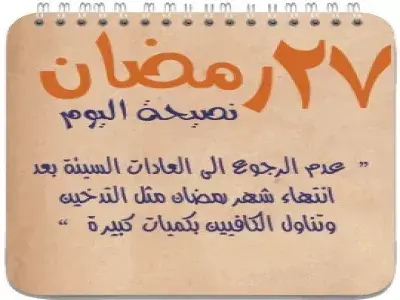 ٢٧ رمضان
نصيحة اليوم
" عدم الرجوع الى العادات السيئة بعد
انتهاء شهر رمضان مثل التدخين
وتناول الكافيين بكميات كبيرة "